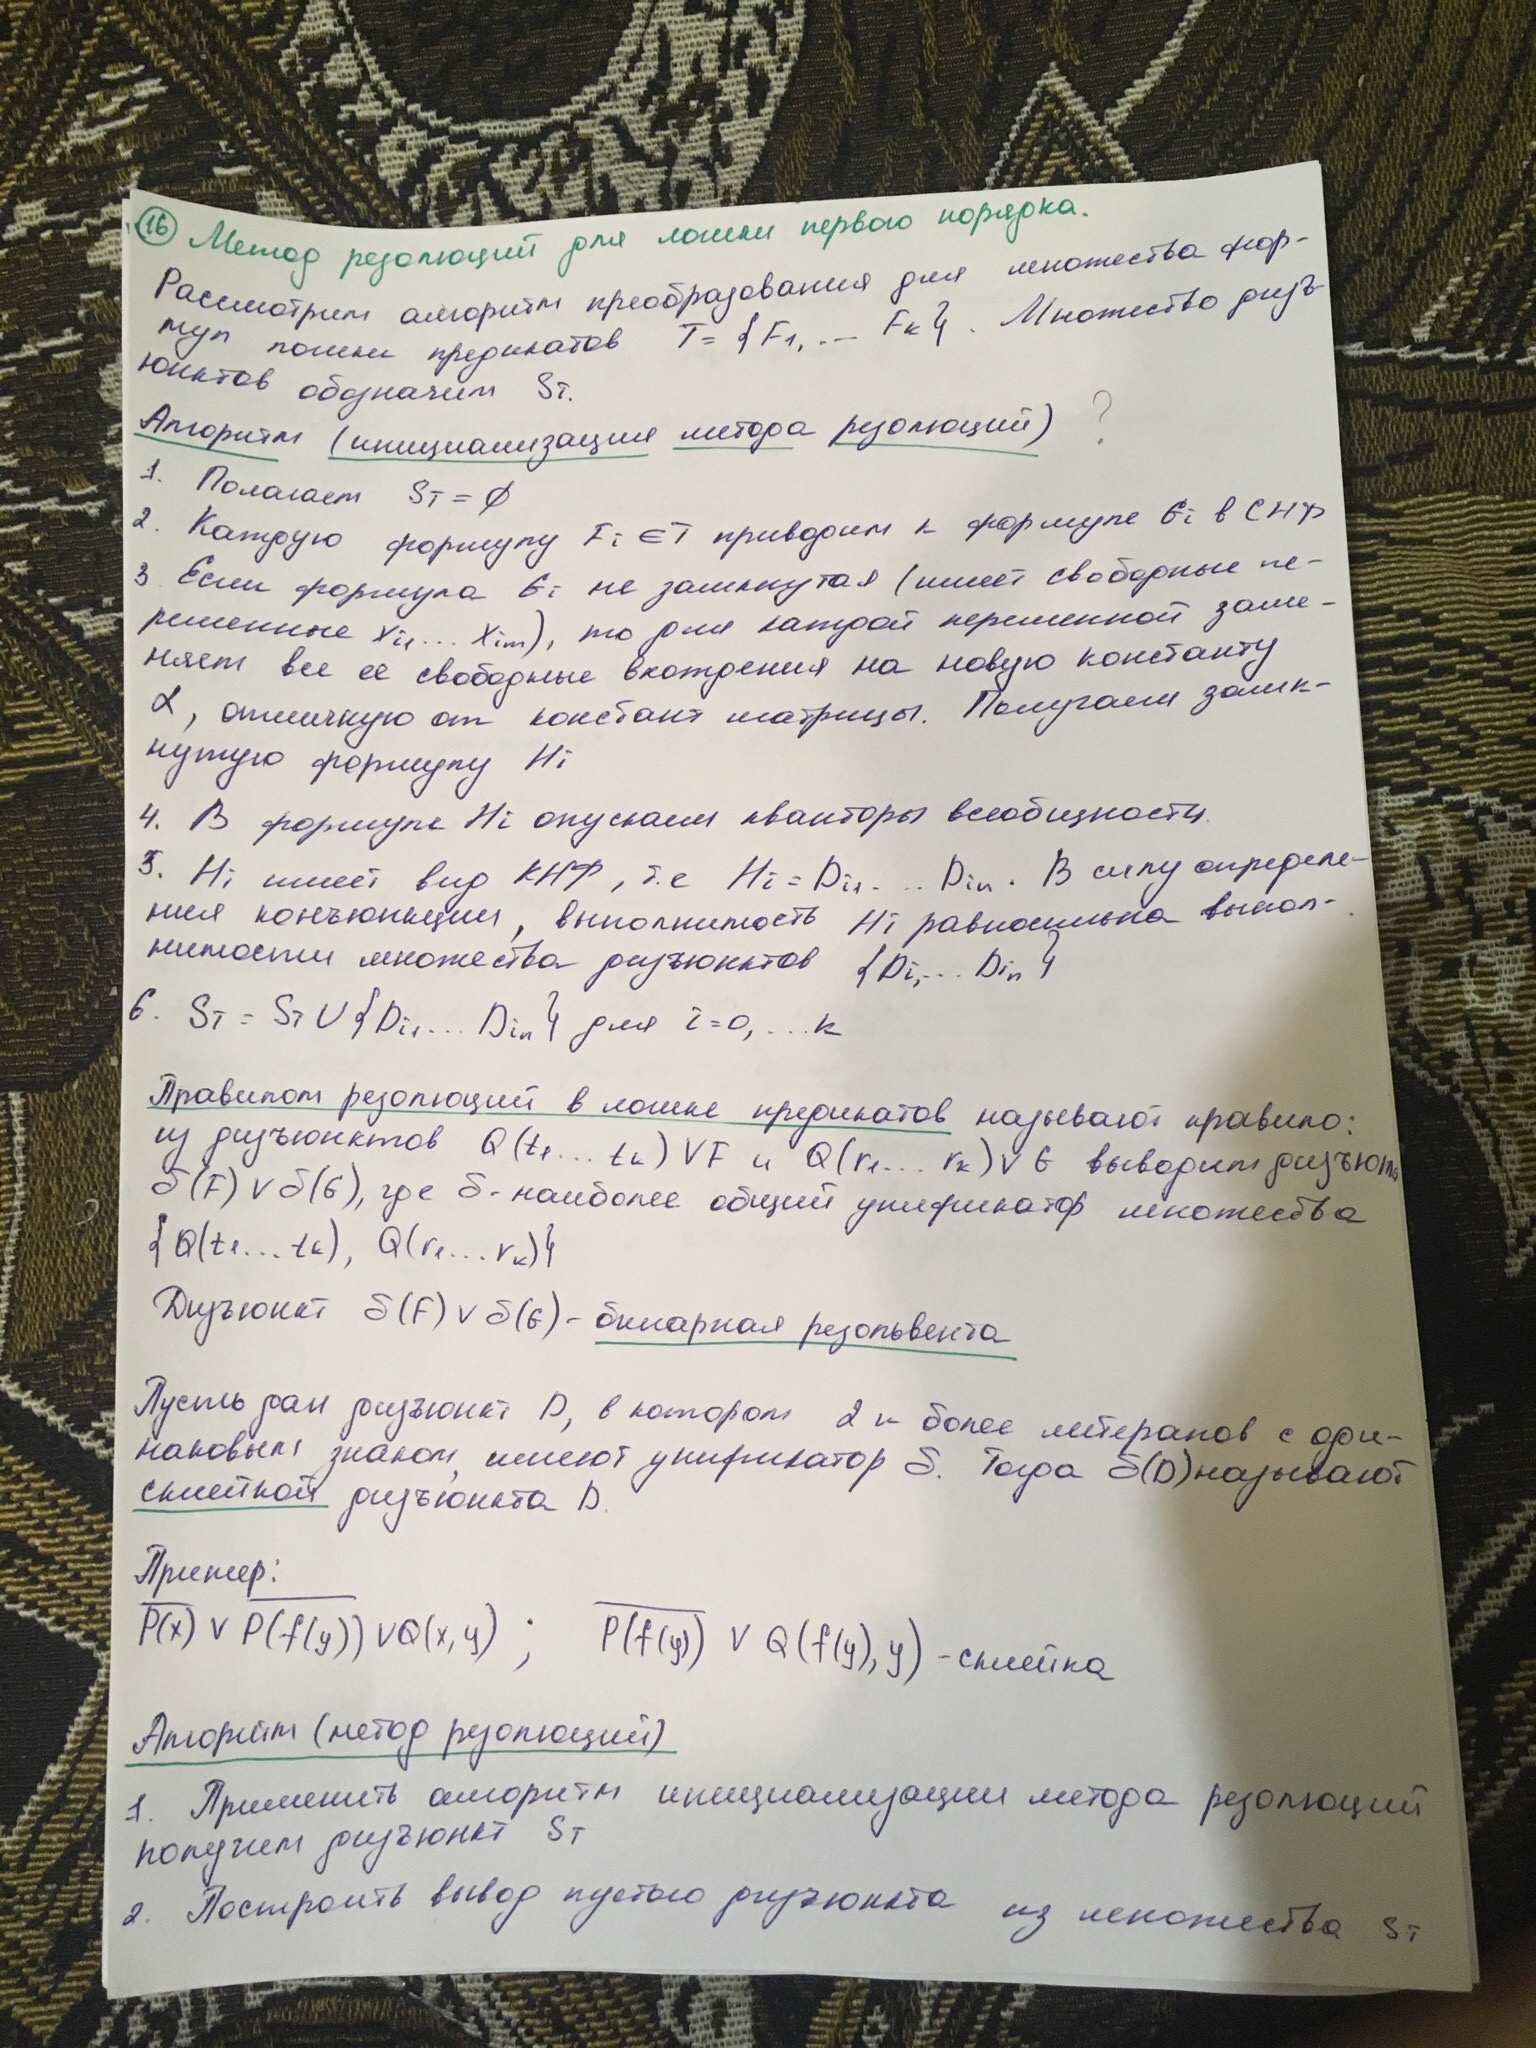 16 Метод резолюций для логики первого порядка.
Рассмотрим алгоритм преобразования для множества фор-
мул логики предикатов T = {F₁, ... Fₖ}. Множество дизъ-
юнктов обозначим Sт.
Алгоритм (инициализация метода резолюций) ?
1. Полагаем Sт = ∅
2. Каждую формулу Fᵢ ∈ T приводим к формуле Gᵢ в СНФ
3 Если формула Gᵢ не замкнутая (имеет свободные пе-
ременные xᵢ₁ ... xᵢₘ), то для каждой переменной заме-
няем все её свободные вхождения на новую константу
α, отличную от констант матрицы. Получаем замк-
нутую формулу Hᵢ
4. В формуле Hᵢ опускаем кванторы всеобщности.
5. Hᵢ имеет вид КНФ, т.е Hᵢ = Dᵢ₁ ... Dᵢₙ. В силу определе-
ния конъюнкции, выполнимость Hᵢ равносильна выпол-
нимости множества дизъюнктов {Dᵢ, ... Dᵢₙ}
6. Sт = Sт ∪ {Dᵢ₁ ... Dᵢₙ} для i = 0, ... k
Правилом резолюций в логике предикатов называют правило:
из дизъюнктов Q(t₁ ... tₖ) ∨ F и Q(r₁ ... rₖ) ∨ G выводим дизъюнкт
δ(F) ∨ δ(G), где δ - наиболее общий унификатор множества
{Q(t₁ ... tₖ), Q(r₁ ... rₖ)}
Дизъюнкт δ(F) ∨ δ(G) - бинарная резольвента
Пусть дан дизъюнкт D, в котором 2 и более литералов с оди-
наковым знаком, имеют унификатор δ. Тогда δ(D) называют
склейкой дизъюнкта D.
Пример:
P̅(̅x̅)̅ ∨ P̅(̅f̅(̅y̅)̅)̅ ∨ Q(x, y) ; P̅(̅f̅(̅y̅)̅)̅ ∨ Q(f(y), y) - склейка
Алгоритм (метод резолюций)
1. Применить алгоритм инициализации метода резолюций
получим дизъюнкт Sт
2. Построить вывод пустого дизъюнкта из множества Sт